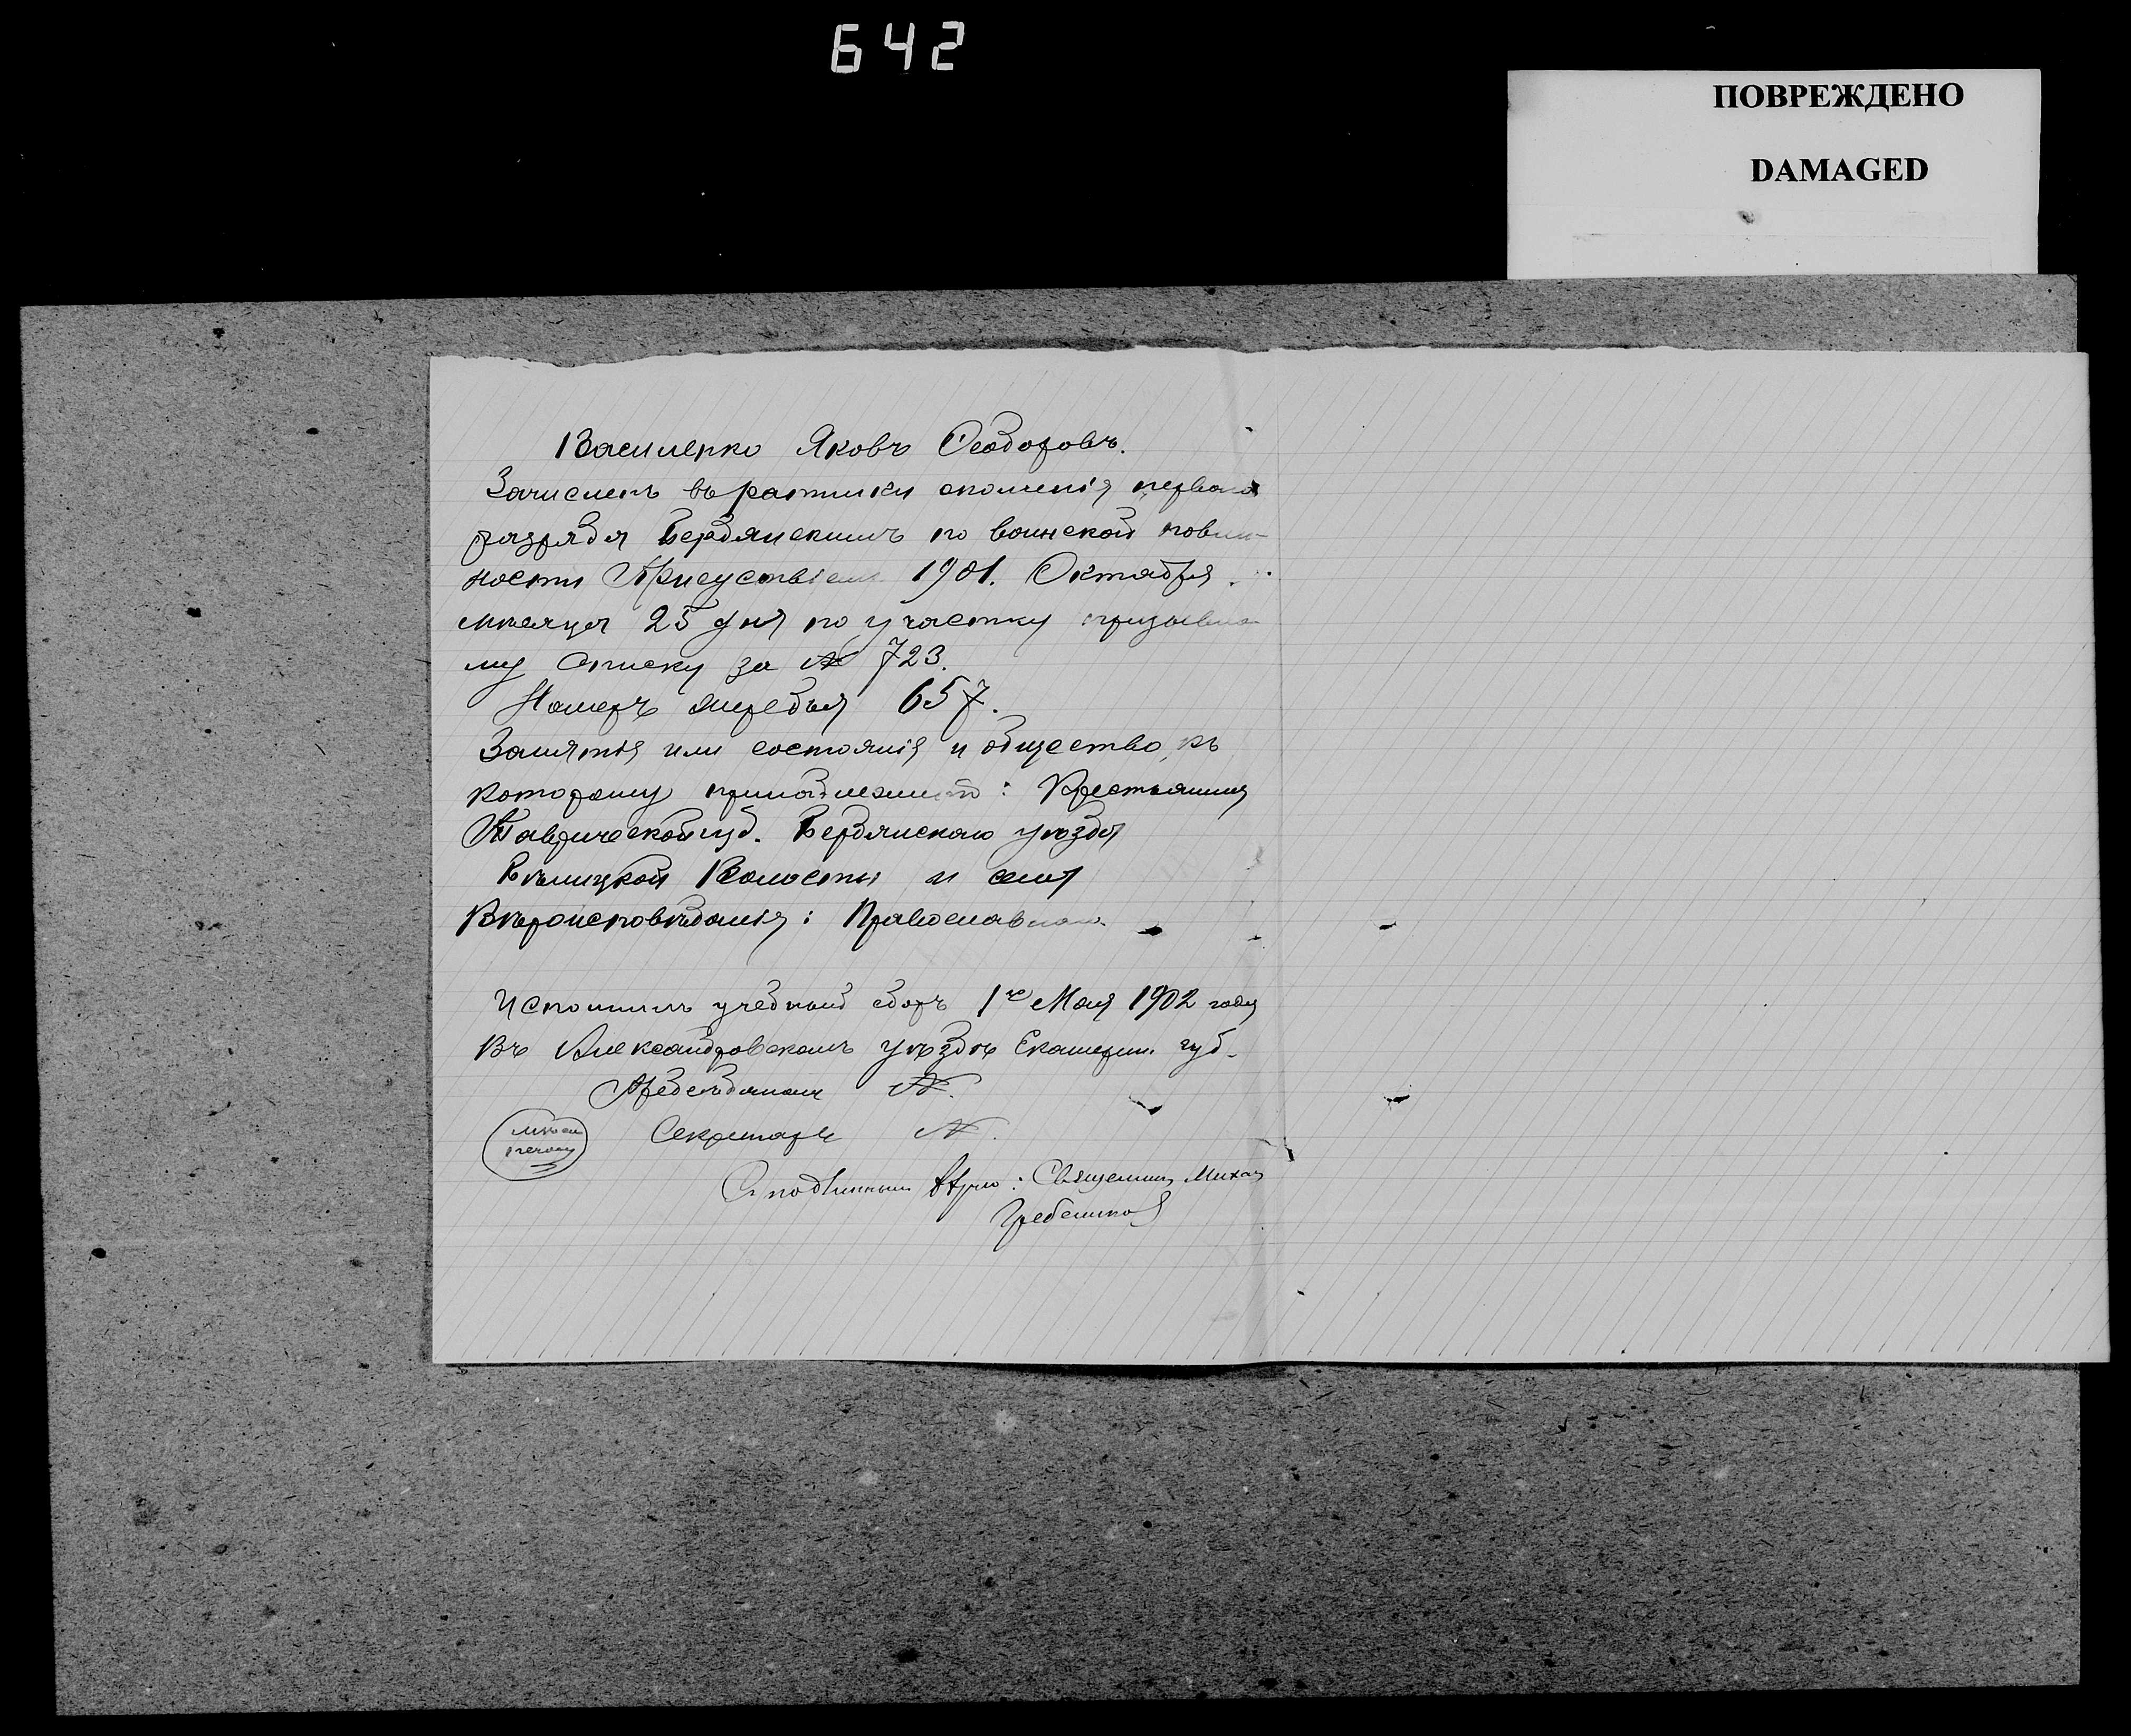 642
ПОВРЕЖДЕНО
DAMAGED
Василенко Яковъ Ѳеодоровъ.
Зачисленъ въ ратники ополченія перваго
разряда Бердянскимъ по воинской повин-
ности Присуствіемъ 1901. Октября
мѣсяца 25 дня по участку призывно
му списку за № 723.
Номеръ жребья 657.
Занятія или состоянія и общество, къ
которому принадлежитъ: Крестьянинъ
Таврической губ. Бердянскаго уѣзда
Волости и села
Вѣроисповѣданія: Православнаго.
Исполнилъ учебный сборъ 1го Мая 1902 года
Въ Александровскомъ уѣздѣ Екатерин. губ.
Предсѣдатель N.
Секретарь N.
мѣсто
печати
Съ подлиннымъ вѣрно: Священникъ Михаилъ
Гребенико